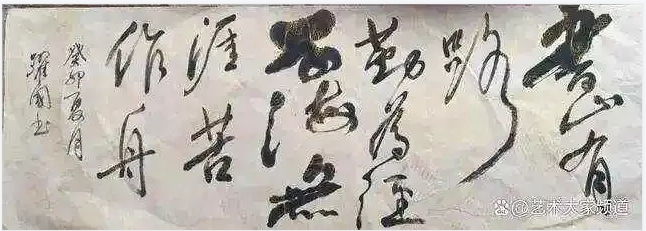 書山有
路
勤為徑
学海無
涯苦
作舟
癸卯夏月
躍國书
@艺术大家频道